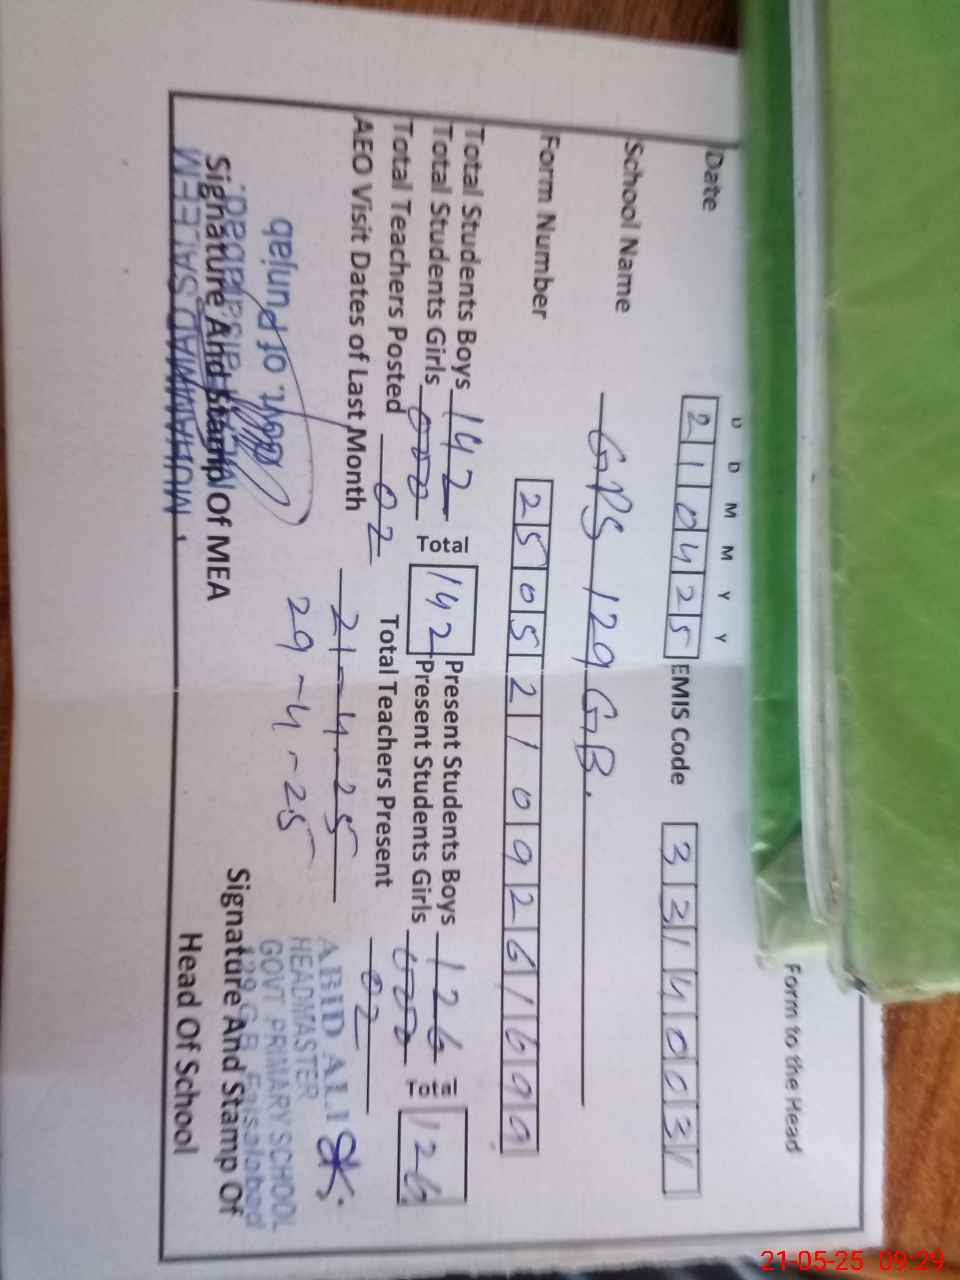 Form to the Head
D D M M Y Y
Date 210425 EMIS Code 33140031
School Name GPS 129 GB.
Form Number 25052109261699
Total Students Boys 142 Total 142 Present Students Boys 126 126
Total Students Girls 000 Present Students Girls 000
Total Teachers Posted 02 Total Teachers Present 02
AEO Visit Dates of Last Month 21-4-25
29-4-25
Govt. of Punjab
Signature And Stamp Of MEA
MUHAMMAD SALEEM
ABID ALI
HEADMASTER
GOVT PRIMARY SCHOOL
129 G.B Faisalabad
Signature And Stamp Of
Head Of School
21-05-25 09:29